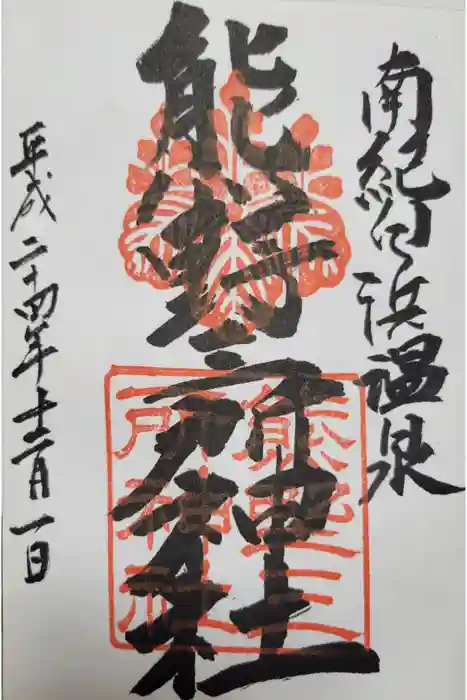 南紀白浜温泉
熊野三所神社
熊野三所神社
平成二十四年十二月一日